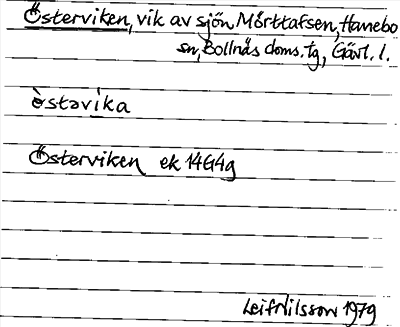 Österviken, vik av sjön Mörttafsen, Hanebo
sn, Bollnäs doms. tg, Gävl. l.
ö̀stəvi̱ka
Österviken ek 14G4g
Leif Nilsson 1979